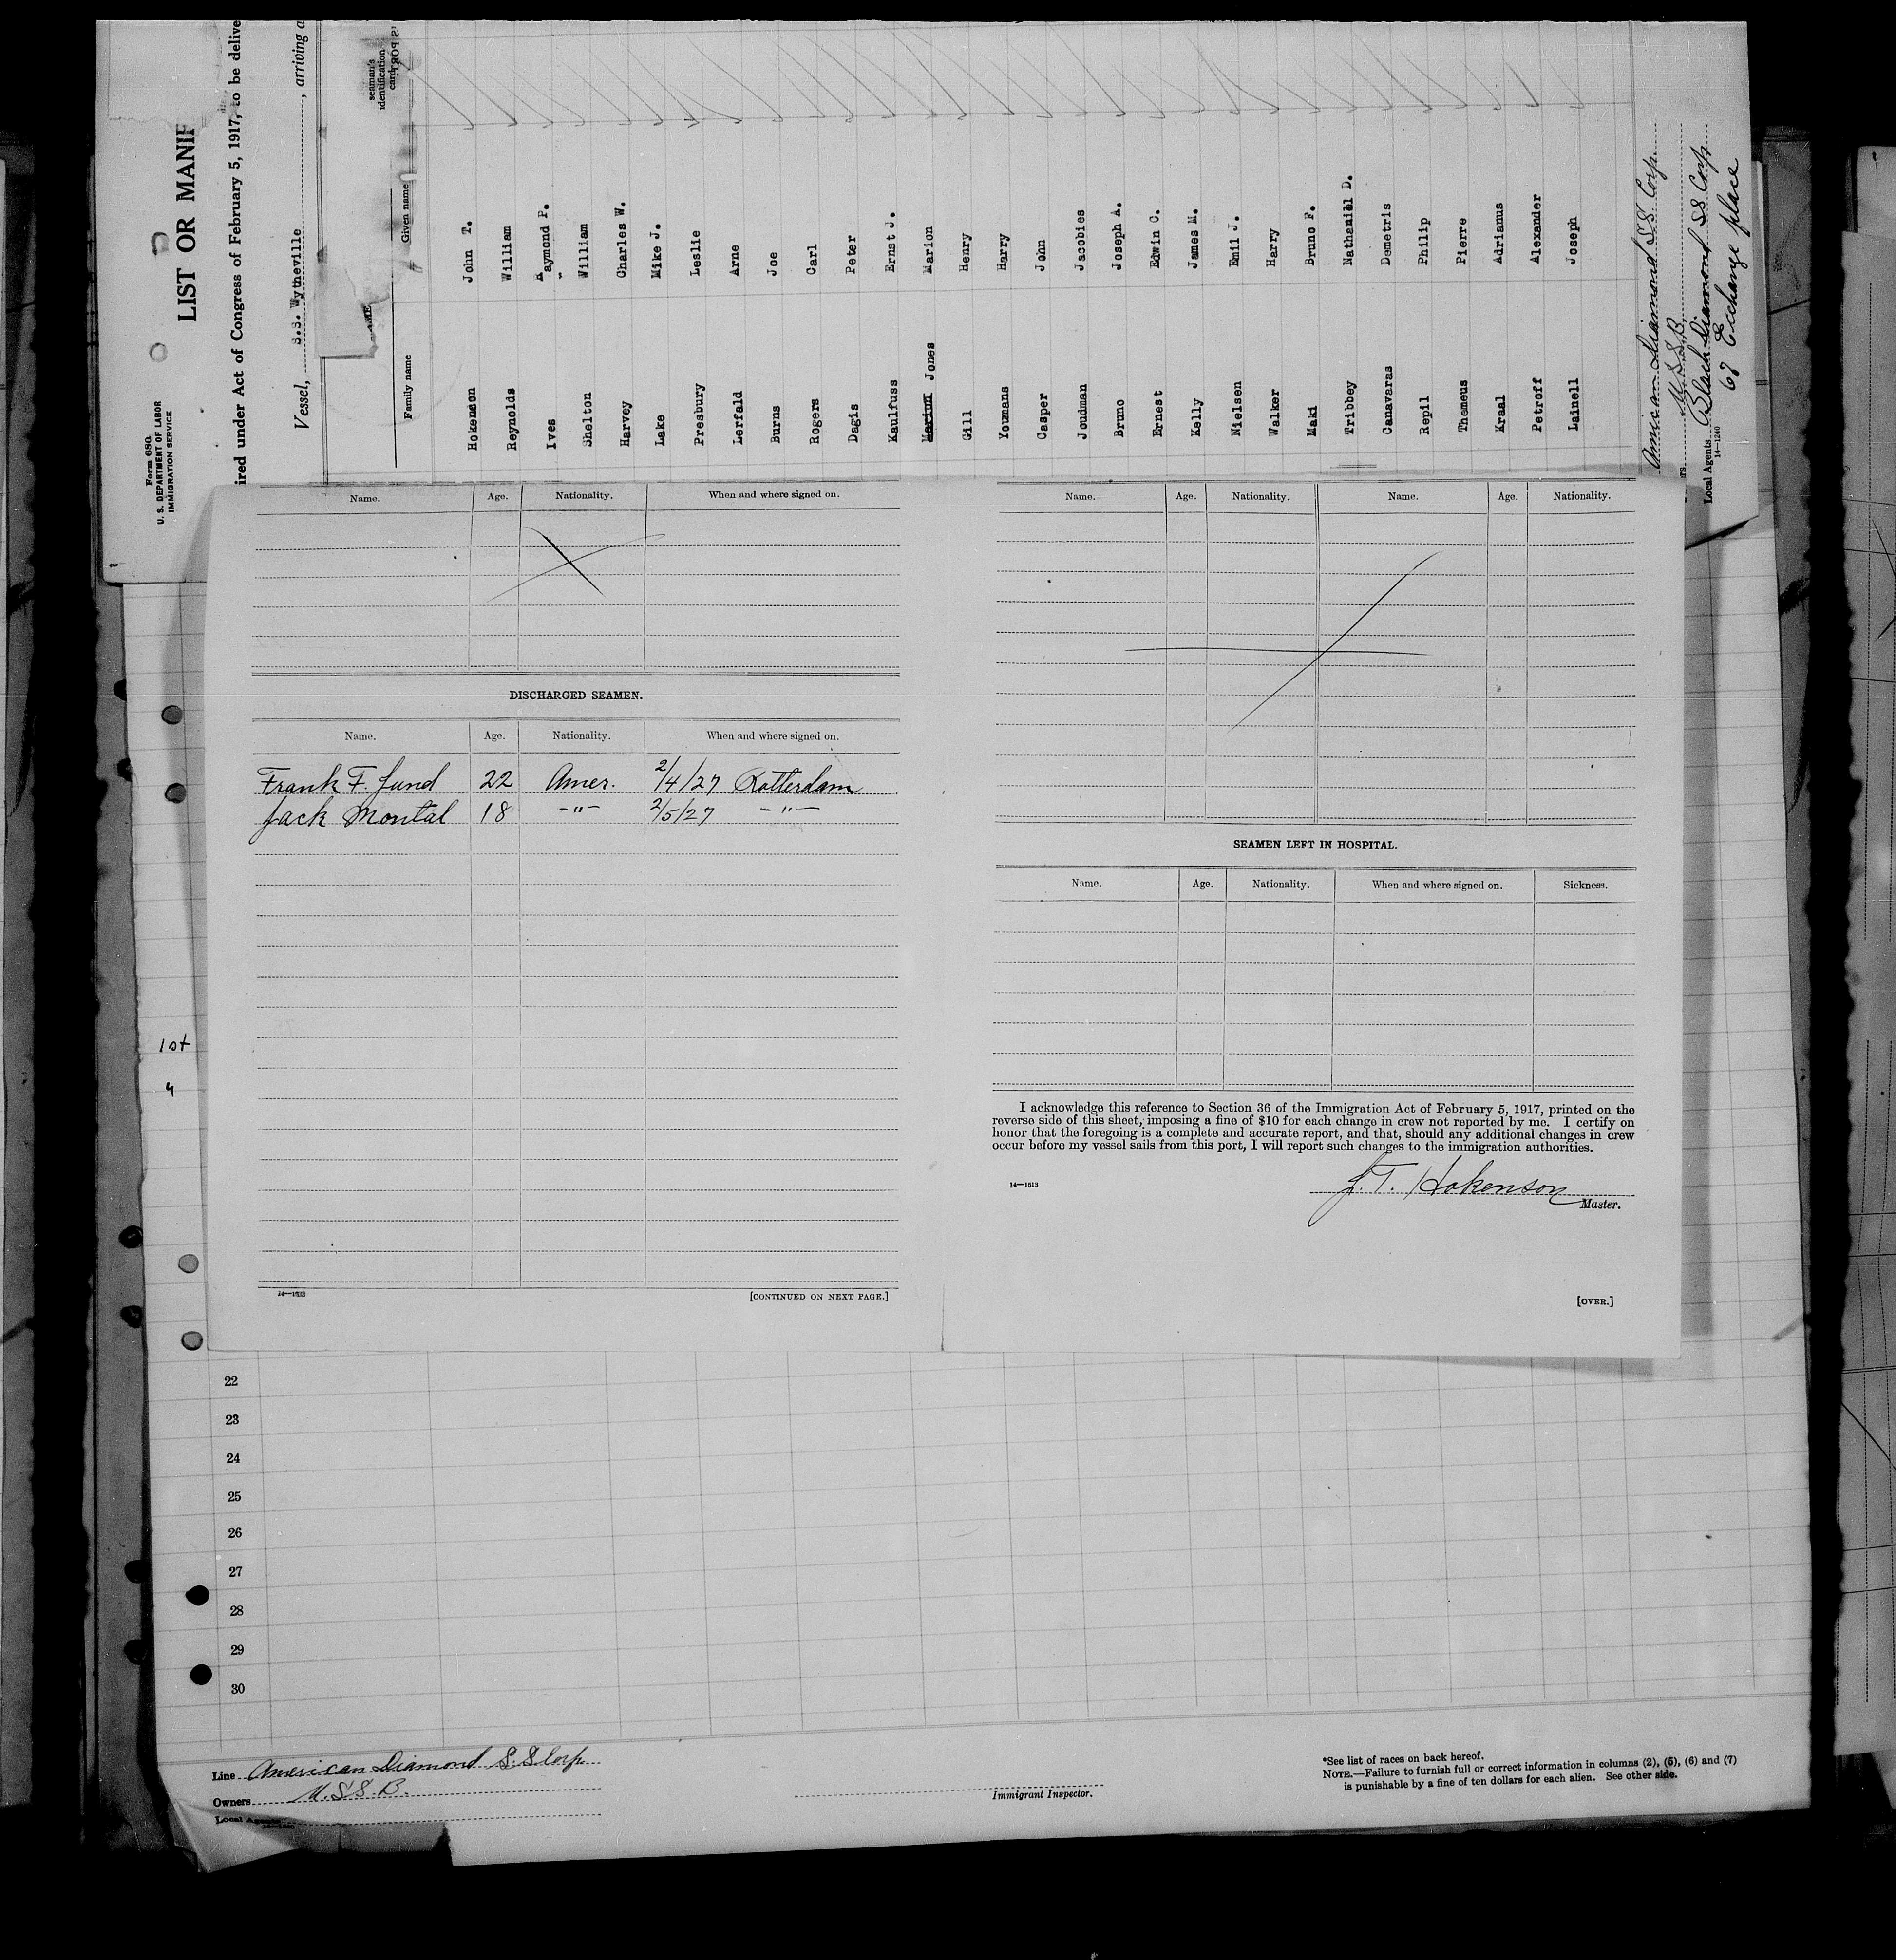 Form 680
U. S. DEPARTMENT OF LABOR
IMMIGRATION SERVICE
LIST OR MANIF
ired under Act of Congress of February 5, 1917, to be delive
Vessel, S.S. Wytheville, arriving a
seaman's
identification
card
Family name Given name
Hokenson John T.
Reynolds William
Ives aymond P.
Shelton William
Harvey Charles W.
Lake Mike J.
Presbury Leslie
Lerfald Arne
Burns Joe
Rogers Carl
Dagis Peter
Kaulfuss Ernst J.
Marion Jones Marion
Gill Henry
Youmans Harry
Casper John
Joudman Jacobies
Bruno Joseph A.
Ernest Edwin C.
Kelly James M.
Nielsen Emil J.
Walker Harry
Maki Bruno F.
Tribbey Nathanial D.
Canavaras Demetris
Repil Philip
Themeus Pierre
Kraal Adrianus
Petroff Alexander
Lainell Joseph
American Diamond SS Corp.
U.S.S.B.
Local Agents Black Diamond SS Corp
14—1240
67 Exchange place
Name. Age. Nationality. When and where signed on.
DISCHARGED SEAMEN.
Name. Age. Nationality. When and where signed on.
Frank F. Jund 22 Amer. 2/4/27 Rotterdam
Jack Montal 18 -"- 2/5/27 -"-
14—1513
[CONTINUED ON NEXT PAGE.]
Name. Age. Nationality. Name. Age. Nationality.
SEAMEN LEFT IN HOSPITAL.
Name. Age. Nationality. When and where signed on. Sickness.
I acknowledge this reference to Section 36 of the Immigration Act of February 5, 1917, printed on the
reverse side of this sheet, imposing a fine of $10 for each change in crew not reported by me. I certify on
honor that the foregoing is a complete and accurate report, and that, should any additional changes in crew
occur before my vessel sails from this port, I will report such changes to the immigration authorities.
14—1513
J. T. Hokenson
Master.
[OVER.]
1st
4
22
23
24
25
26
27
28
29
30
Line American Diamond S.S. Corp.
Owners U.S.S.B.
Local Agents
Immigrant Inspector.
*See list of races on back hereof.
NOTE.—Failure to furnish full or correct information in columns (2), (5), (6) and (7)
is punishable by a fine of ten dollars for each alien. See other side.